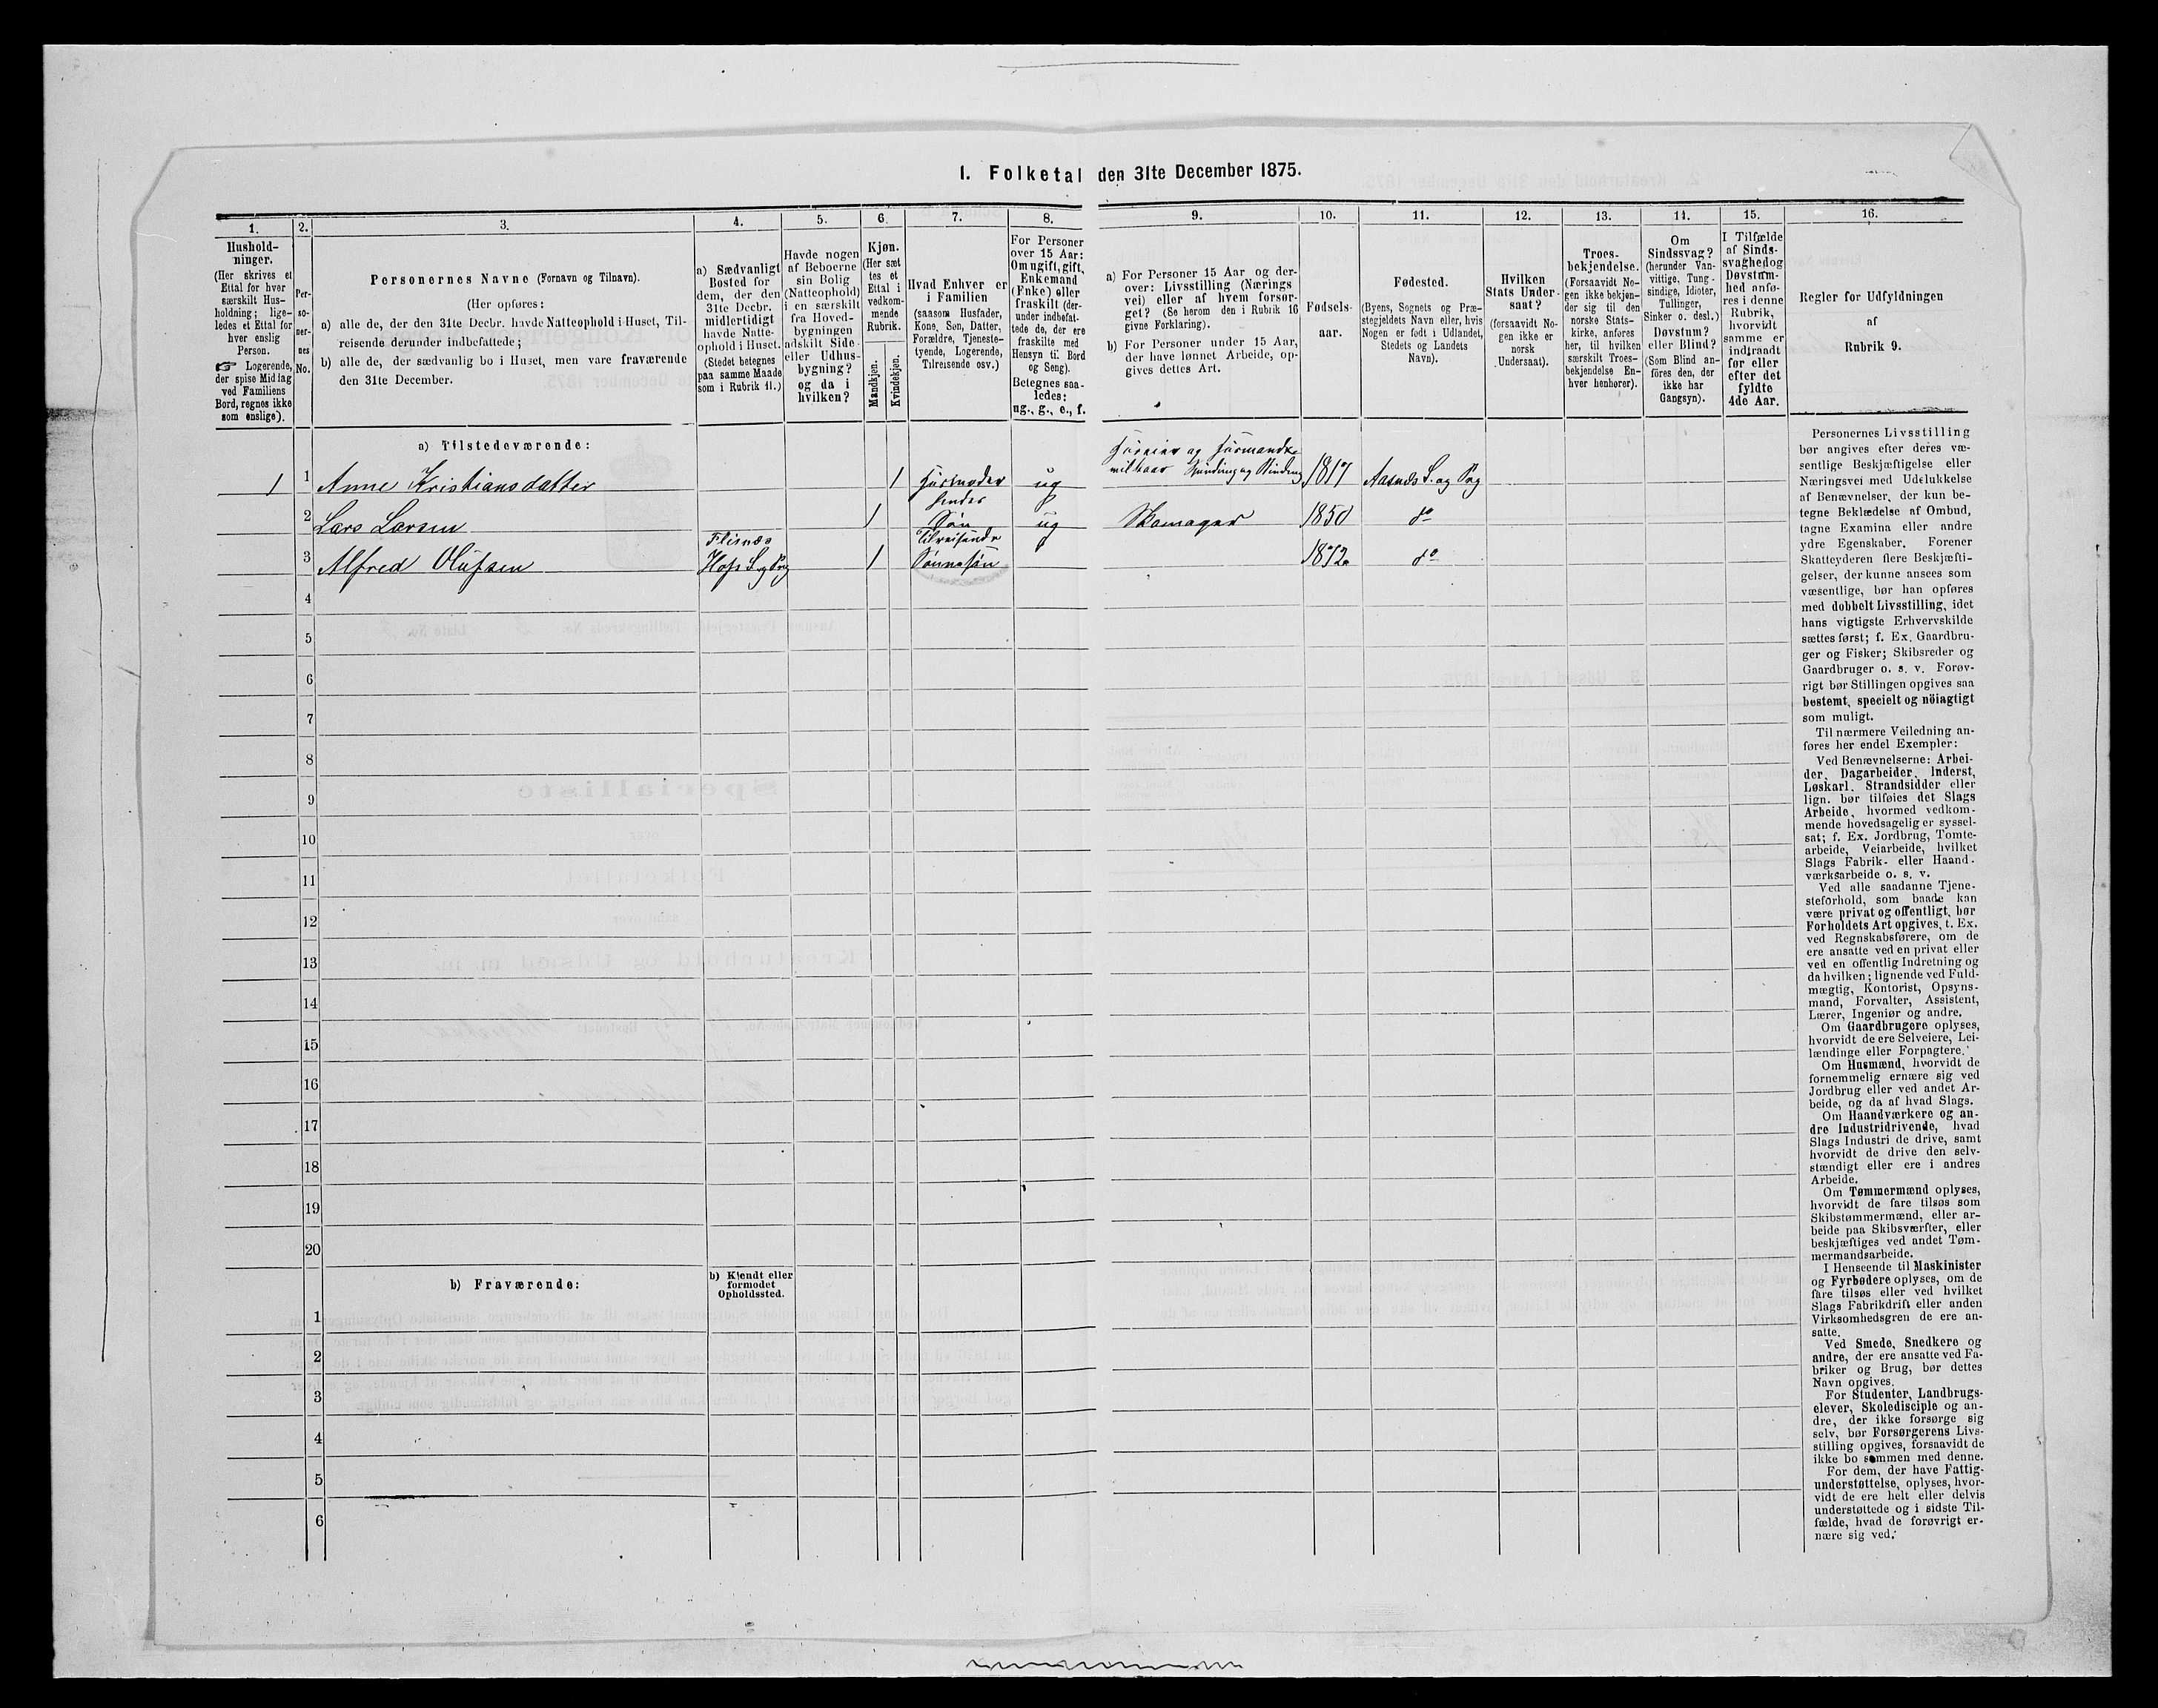 1. Folketal den 31te December 1875.
1. 2. 3. 4. 5. 6. 7. 8. 9. 10. 11. 12. 13. 14. 15. 16.
Hushold-
ninger.
(Her skrives et
Ettal for hver
særskilt Hus-
holdning; lige-
ledes et Ettal for
hver enslig
Person.
☞ Logerende,
der spise Middag
ved Familiens
Bord, regnes ikke
som enslige).
Per-
so-
ner-
nes
No.
Personernes Navne (Fornavn og Tilnavn).
(Her opføres:
a) alle de, der den 31te Decbr. havde Natteophold i Huset, Til-
reisende derunder indbefattede;
b) alle de, der sædvanlig bo i Huset, men vare fraværende
den 31te December.
a) Sædvanligt
Bosted for
dem, der den
31te Decbr.
midlertidigt
havde Natte-
ophold i Huset.
(Stedet betegnes
paa samme Maade
som i Rubrik 11.)
Havde nogen
af Beboerne
sin Bolig
(Natteophold)
i en særskilt
fra Hoved-
bygningen
adskilt Side-
eller Udhus-
bygning?
og da i
hvilken?
Kjøn.
(Her sæt
tes et
Ettal i
vedkom-
mende
Rubrik.
Mandkjøn.
Kvindekjøn.
Hvad Enhver er
i Familien
(saasom Husfader,
Kone, Søn, Datter,
Forældre, Tjeneste-
tyende, Logerende,
Tilreisende osv.)
For Personer
over 15 Aar:
Om ugift, gift,
Enkemand
(Enke) eller
fraskilt (der-
under indbefat-
tede de, der ere
fraskilte med
Hensyn til Bord
og Seng).
Betegnes saa-
ledes:
ug., g., e., f.
a) For Personer 15 Aar og der-
over: Livsstilling (Nærings
vei) eller af hvem forsør-
get? (Se herom den i Rubrik 16
givne Forklaring).
b) For Personer under 15 Aar,
der have lønnet Arbeide, op-
gives dettes Art.
Fødsels-
aar.
Fødested.
(Byens, Sognets og Præ-
stegjeldets Navn eller, hvis
Nogen er født i Udlandet,
Stedets og Landets
Navn).
Hvilken
Stats Under-
saat?
(forsaavidt No-
gen ikke er
norsk
Undersaat).
Troes-
bekjendelse.
(Forsaavidt No-
gen ikke bekjen-
der sig til den
norske Stats-
kirke, anføres
her, til hvilken
særskilt Troes-
bekjendelse En-
hver henhører).
Om
Sindssvag?
(herunder Van-
vittige, Tung-
sindige, Idioter,
Tullinger,
Sinker o. desl.)
Døvstum?
eller Blind?
(Som Blind an-
føres den, der
ikke har
Gangsyn).
I Tilfælde
af Sinds-
svaghed og
Døvstum-
hed anfø-
res i denne
Rubrik,
hvorvidt
samme er
indtraadt
før eller
efter det
fyldte
4de Aar.
Regler for Udfyldningen
af
Rubrik 9.
a) Tilstedeværende:
1 1 Anne Kristiansdatter 1 Husmoder ug 1817 Aasnæs S. og Prg
2 Lars Larsen 1 hendes Søn ug Skomager 1850 do
3 Alfred Olufsen Flisnæs Hofs S. og Prg 1 Tilreisende Sønnesøn 1872 do
4
5
6
7
8
9
10
11
12
13
14
15
16
17
18
19
20
b) Fraværende:
b) Kjendt eller
formodet
Opholdssted.
1
2
3
4
5
6
Personernes Livsstilling
bør angives efter deres væ-
sentlige Beskjæftigelse eller
Næringsvei med Udelukkelse
af Benævnelser, der kun be-
tegne Beklædelse af Ombud,
tagne Examina eller andre
ydre Egenskaber. Forener
Skatteyderen flere Beskjæfti-
gelser, der kunne ansees som
væsentlige, bør han opføres
med dobbelt Livsstilling, idet
hans vigtigste Erhvervskilde
sættes først; f. Ex. Gaardbru-
ger og Fisker; Skibsreder og
Gaardbruger o. s. v. Forøv-
rigt bør Stillingen opgives saa
bestemt, specielt og nöiagtigt
som muligt.
Til nærmere Veiledning an-
føres her endel Exempler:
Ved Benævnelserne: Arbei-
der, Dagarbeider, Inderst,
Løskarl, Strandsidder eller
lign. bør tilføies det Slags
Arbeide, hvormed vedkom-
mende hovedsagelig er syssel-
sat; f. Ex. Jordbrug, Tomte-
arbeide, Veiarbeide, hvilket
Slags Fabrik- eller Haand-
værksarbeide o. s. v.
Ved alle saadanne Tjene-
steforhold, som baade kan
være privat og offentligt, bør
Forholdets Art opgives, t. Ex.
ved Regnskabsførere, om de
ere ansatte ved en privat eller
ved en offentlig Indretning og
da hvilken; lignende ved Fuld-
mægtig, Kontorist, Opsyns-
mand, Forvalter, Assistent,
Lærer, Ingeniør og andre.
Om Gaardbrugere oplyses,
hvorvidt de ere Selveiere, Lei-
lændinge eller Forpagtere.
Om Husmænd, hvorvidt de
fornemmelig ernære sig ved
Jordbrug eller ved andet Ar-
beide, og da af hvad Slags.
Om Haandværkere og an-
dre Industridrivende, hvad
Slags Industri de drive, samt
hvorvidt de drive den selv-
stændigt eller ere i andres
Arbeide.
Om Tømmermænd oplyses,
hvorvidt de fare tilsøs som
Skibstømmermænd, eller ar-
beide paa Skibsværfter, eller
beskjæftiges ved andet Tøm-
mermandsarbeide.
I Henseende til Maskinister
og Fyrbødere oplyses, om de
fare tilsøs eller ved hvilket
Slags Fabrikdrift eller anden
Virksomhedsgren de ere an-
satte.
Ved Smede, Snedkere og
andre, der ere ansatte ved Fa-
briker og Brug, bør dettes
Navn opgives.
For Studenter, Landbrugs-
elever, Skoledisciple og an-
dre, der ikke forsørge sig
selv, bør Forsørgerens Livs-
stilling opgives, forsaavidt de
ikke bo sammen med denne.
For dem, der have Fattig-
understøttelse, oplyses, hvor-
vidt de ere helt eller delvis
understøttede og i sidste Til-
fælde, hvad de forøvrigt er-
nære sig ved.